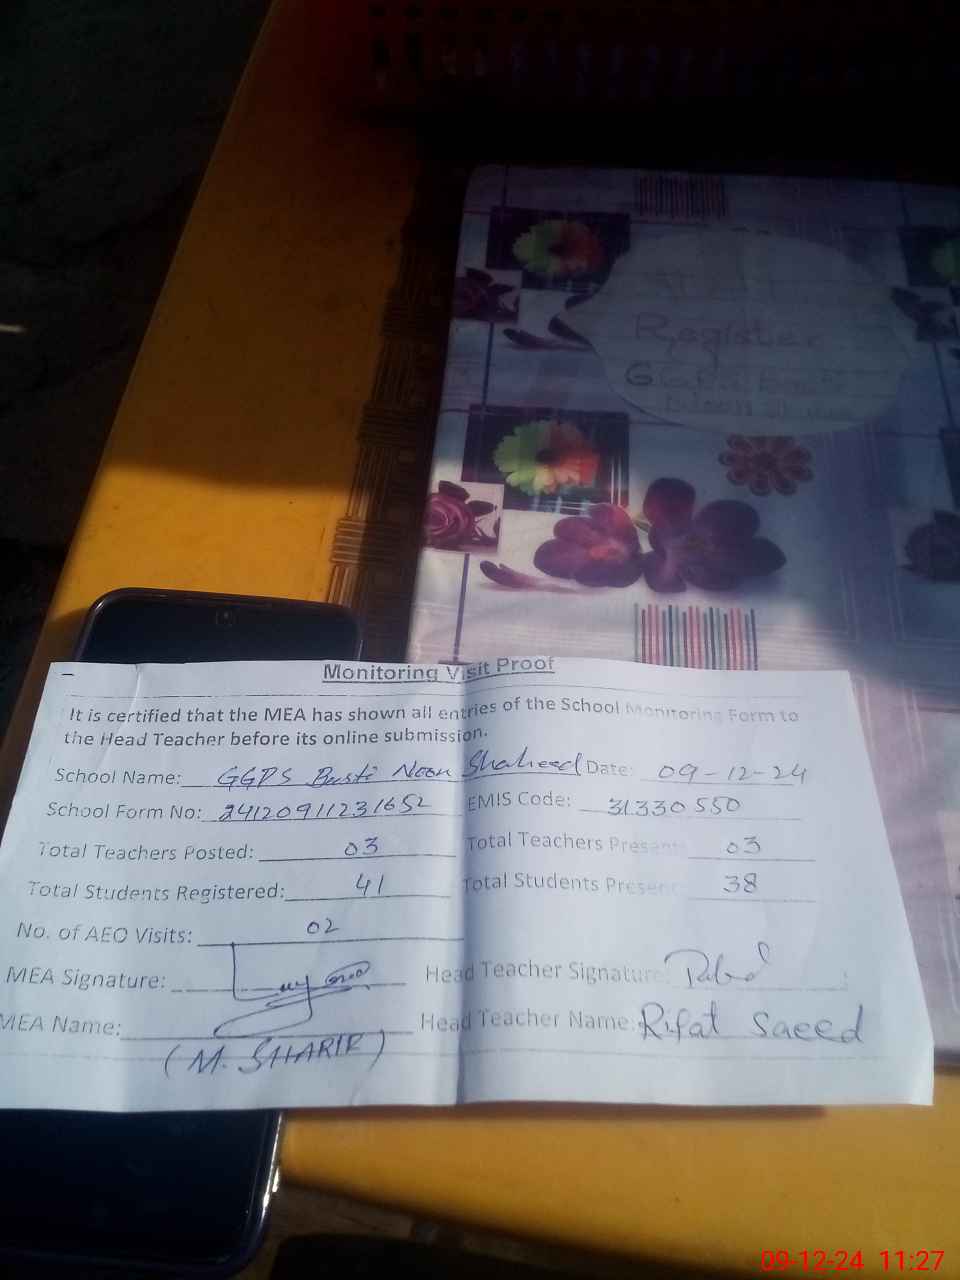 Register
Monitoring Visit Proof
It is certified that the MEA has shown all entries of the School Monitoring Form to
the Head Teacher before its online submission.
School Name: GGPS Basti Noon Shaheed Date: 09-12-24
School Form No: 24120911231652 EMIS Code: 31330550
Total Teachers Posted: 03 Total Teachers Present: 03
Total Students Registered: 41 Total Students Present: 38
No. of AEO Visits: 02
MEA Signature: Head Teacher Signature:
MEA Name: Head Teacher Name: Rifat Saeed
(M. SHARIF)
09-12-24 11:27